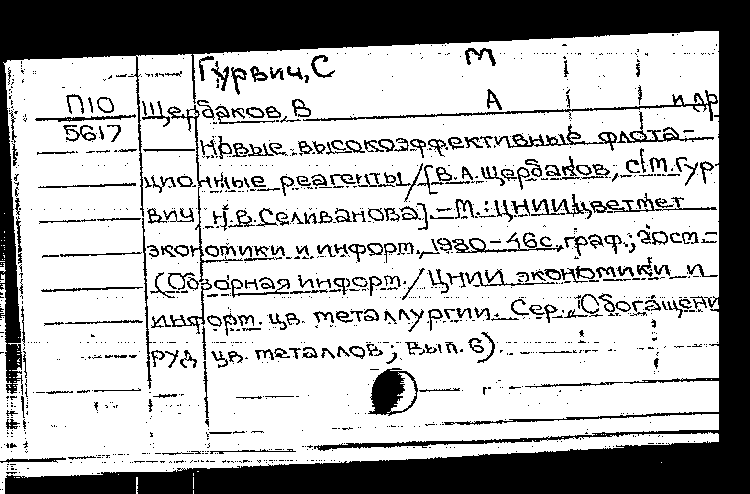 Гурвич, С М
П10 Щербаков, В А и др
5617
Новые высокоэффективные флота-
ционные реагенты/[В.А.Щербаков, С.М.Гур-
вич, Н.В.Селиванова].-М.:ЦНИИцветмет
экономики и информ., 1980-46с, граф.; 20см.-
(Обзорная информ./ЦНИИ экономики и
информ. цв. металлургии. Сер. „Обогащени
руд цв. металлов; Вып. 6).